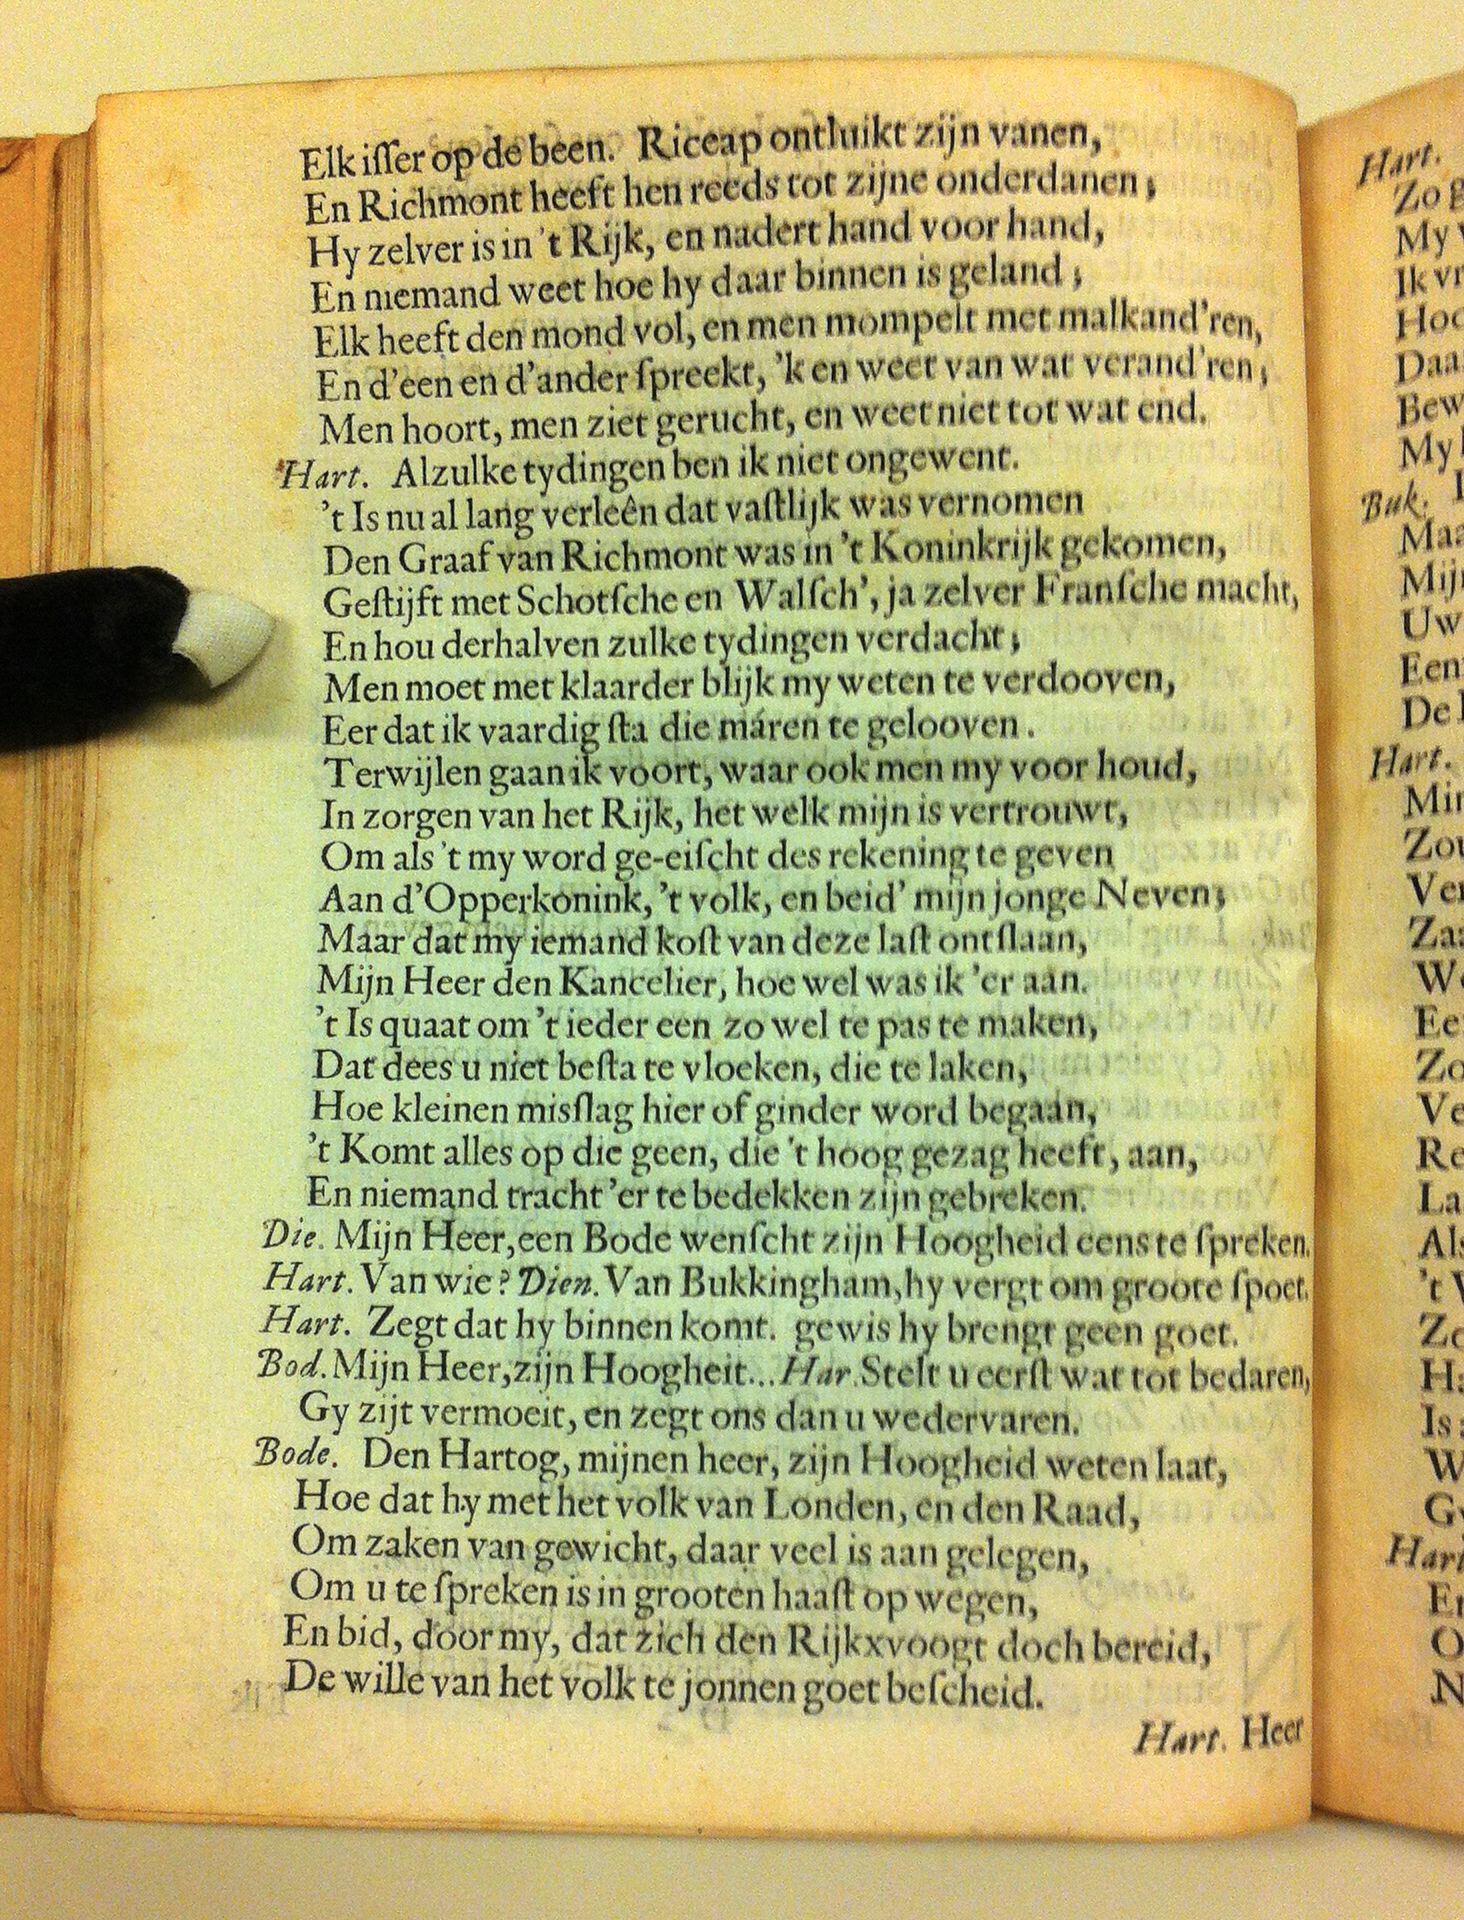 Elk iſſer op de been. Riceap ontluikt zijn vanen,
En Richmont heeft hen reeds tot zijne onderdanen;
Hy zelver is in 't Rijk, en nadert hand voor hand,
En niemand weet hoe hy daar binnen is geland;
Elk heeft den mond vol, en men mompelt met malkand'ren,
En d'een en d'ander ſpreekt, 'k en weet van wat verand'ren;
Men hoort, men ziet gerucht, en weet niet tot wat end.
Hart. Alzulke tydingen ben ik niet ongewent.
't Is nu al lang verleên dat vaſtlijk was vernomen
Den Graaf van Richmont was in 't Koninkrijk gekomen,
Geſtijft met Schotſche en Walſch', ja zelver Franſche macht,
En hou derhalven zulke tydingen verdacht;
Men moet met klaarder blijk my weten te verdooven,
Eer dat ik vaardig ſta die máren te gelooven.
Terwijlen gaan ik voort, waar ook men my voor houd,
In zorgen van het Rijk, het welk mijn is vertrouwt,
Om als 't my word ge-eiſcht des rekening te geven
Aan d'Opperkonink, 't volk, en beid' mijn jonge Neven;
Maar dat my iemand koſt van deze laſt ontſlaan,
Mijn Heer den Kancelier, hoe wel was ik 'er aan.
't Is quaat om 't ieder een zo wel te pas te maken,
Dat dees u niet beſta te vloeken, die te laken,
Hoe kleinen misſlag hier of ginder word begaan,
't Komt alles op die geen, die 't hoog gezag heeft, aan,
En niemand tracht 'er te bedekken zijn gebreken.
Die. Mijn Heer, een Bode wenſcht zijn Hoogheid eens te ſpreken.
Hart. Van wie? Dien. Van Bukkingham, hy vergt om groote ſpoet.
Hart. Zegt dat hy binnen komt. gewis hy brengt geen goet.
Bod. Mijn Heer, zijn Hoogheit... Har. Stelt u eerſt wat tot bedaren,
Gy zijt vermoeit, en zegt ons dan u wedervaren.
Bode. Den Hartog, mijnen heer, zijn Hoogheid weten laat,
Hoe dat hy met het volk van Londen, en den Raad,
Om zaken van gewicht, daar veel is aan gelegen,
Om u te ſpreken is in grooten haaſt op wegen,
En bid, door my, dat zich den Rijkxvoogt doch bereid,
De wille van het volk te jonnen goet beſcheid.
Hart. Heer
Hart.
Zo
My
Ik
Daa
Bew
My
Buk.
Maa
Mijn
Uw
Een
De
Hart.